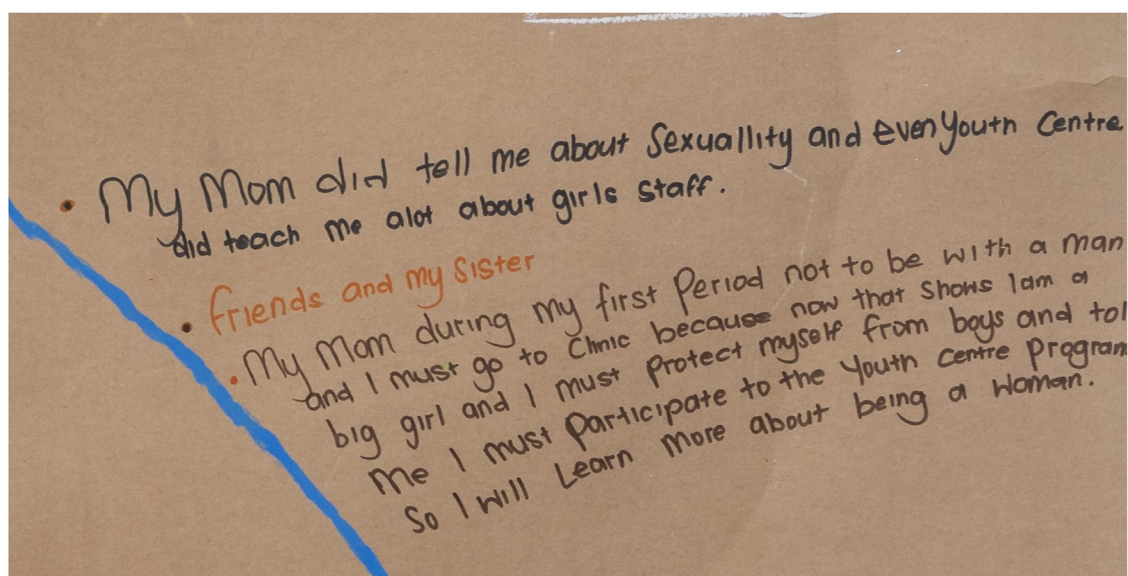 • My Mom did tell me about Sexuallity and even Youth Centre
did teach me alot about girls staff.
• friends and my sister
• My Mom during my first Period not to be with a man
and I must go to Clinic because now that shows Iam a
big girl and I must Protect myself from boys and tol
me I must Participate to the Youth Centre Program
So I will Learn more about being a Woman.